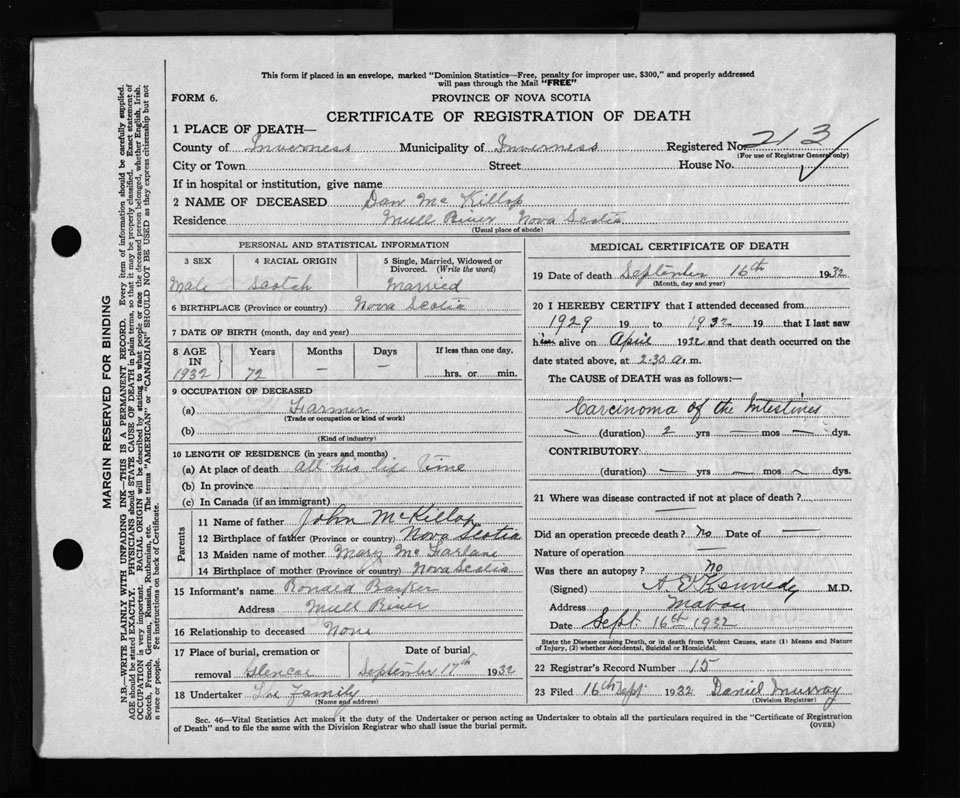 This form if placed in an envelope, marked "Dominion Statistics—Free, penalty for improper use, $300," and properly addressed
will pass through the Mail "FREE"
FORM 6.
PROVINCE OF NOVA SCOTIA
CERTIFICATE OF REGISTRATION OF DEATH
1 PLACE OF DEATH—
County of Inverness Municipality of Inverness Registered No. 213
(For use of Registrar General only)
City or Town Street House No.
If in hospital or institution, give name
2 NAME OF DECEASED Dan Mc Killop
Residence Mull River Nova Scotia
(Usual place of abode)
PERSONAL AND STATISTICAL INFORMATION
3 SEX 4 RACIAL ORIGIN 5 Single, Married, Widowed or
Divorced. (Write the word)
Male Scotch Married
6 BIRTHPLACE (Province or country) Nova Scotia
7 DATE OF BIRTH (month, day and year)
8 AGE Years Months Days If less than one day,
IN
1932 72 — — hrs. or min.
9 OCCUPATION OF DECEASED
(a) Farmer
(Trade or occupation or kind of work)
(b)
(Kind of industry)
10 LENGTH OF RESIDENCE (in years and months)
(a) At place of death all his life time
(b) In province
(c) In Canada (if an immigrant)
Parents
11 Name of father John McKillop
12 Birthplace of father (Province or country) Nova Scotia
13 Maiden name of mother Mary Mc Farlane
14 Birthplace of mother (Province or country) Nova Scotia
15 Informant's name Ronald Barker
Address Mull River
16 Relationship to deceased None
17 Place of burial, cremation or Date of burial
removal Glencoe September 17th 1932
18 Undertaker The Family
(Name and address)
MEDICAL CERTIFICATE OF DEATH
19 Date of death September 16th 1932
(Month, day and year)
20 I HEREBY CERTIFY that I attended deceased from
1929 19 to 1932 19 that I last saw
him alive on April 1932 and that death occurred on the
date stated above, at 2.30 a. m.
The CAUSE of DEATH was as follows:—
Carcinoma of the Intestines
— (duration) 2 yrs — mos — dys.
CONTRIBUTORY
(duration) — yrs — mos — dys.
21 Where was disease contracted if not at place of death?
—
Did an operation precede death? No Date of —
Nature of operation —
Was there an autopsy? No
(Signed) A E Kennedy M.D.
Address Mabou
Date Sept 16th 1932
State the Disease causing Death, or in death from Violent Causes, state (1) Means and Nature
of Injury, (2) whether Accidental, Suicidal or Homicidal.
22 Registrar's Record Number 15
23 Filed 16th Sept 1932 Daniel Murray
(Division Registrar)
Sec. 46—Vital Statistics Act makes it the duty of the Undertaker or person acting as Undertaker to obtain all the particulars required in the "Certificate of Registration
of Death" and to file the same with the Division Registrar who shall issue the burial permit. (OVER)
MARGIN RESERVED FOR BINDING
N.B.—WRITE PLAINLY WITH UNFADING INK—THIS IS A PERMANENT RECORD. Every item of information should be carefully supplied.
AGE should be stated EXACTLY. PHYSICIANS should STATE CAUSE OF DEATH in plain terms, so that it may be properly classified. Exact statement of
OCCUPATION is very important. RACIAL ORIGIN will be described by stating to what people or race the deceased person belonged, whether English, Irish,
Scotch, French, German, Russian, Ruthenian, etc. The terms "AMERICAN" or "CANADIAN" SHOULD NOT BE USED as they express citizenship but not
a race or people. Fee instructions on back of Certificate.